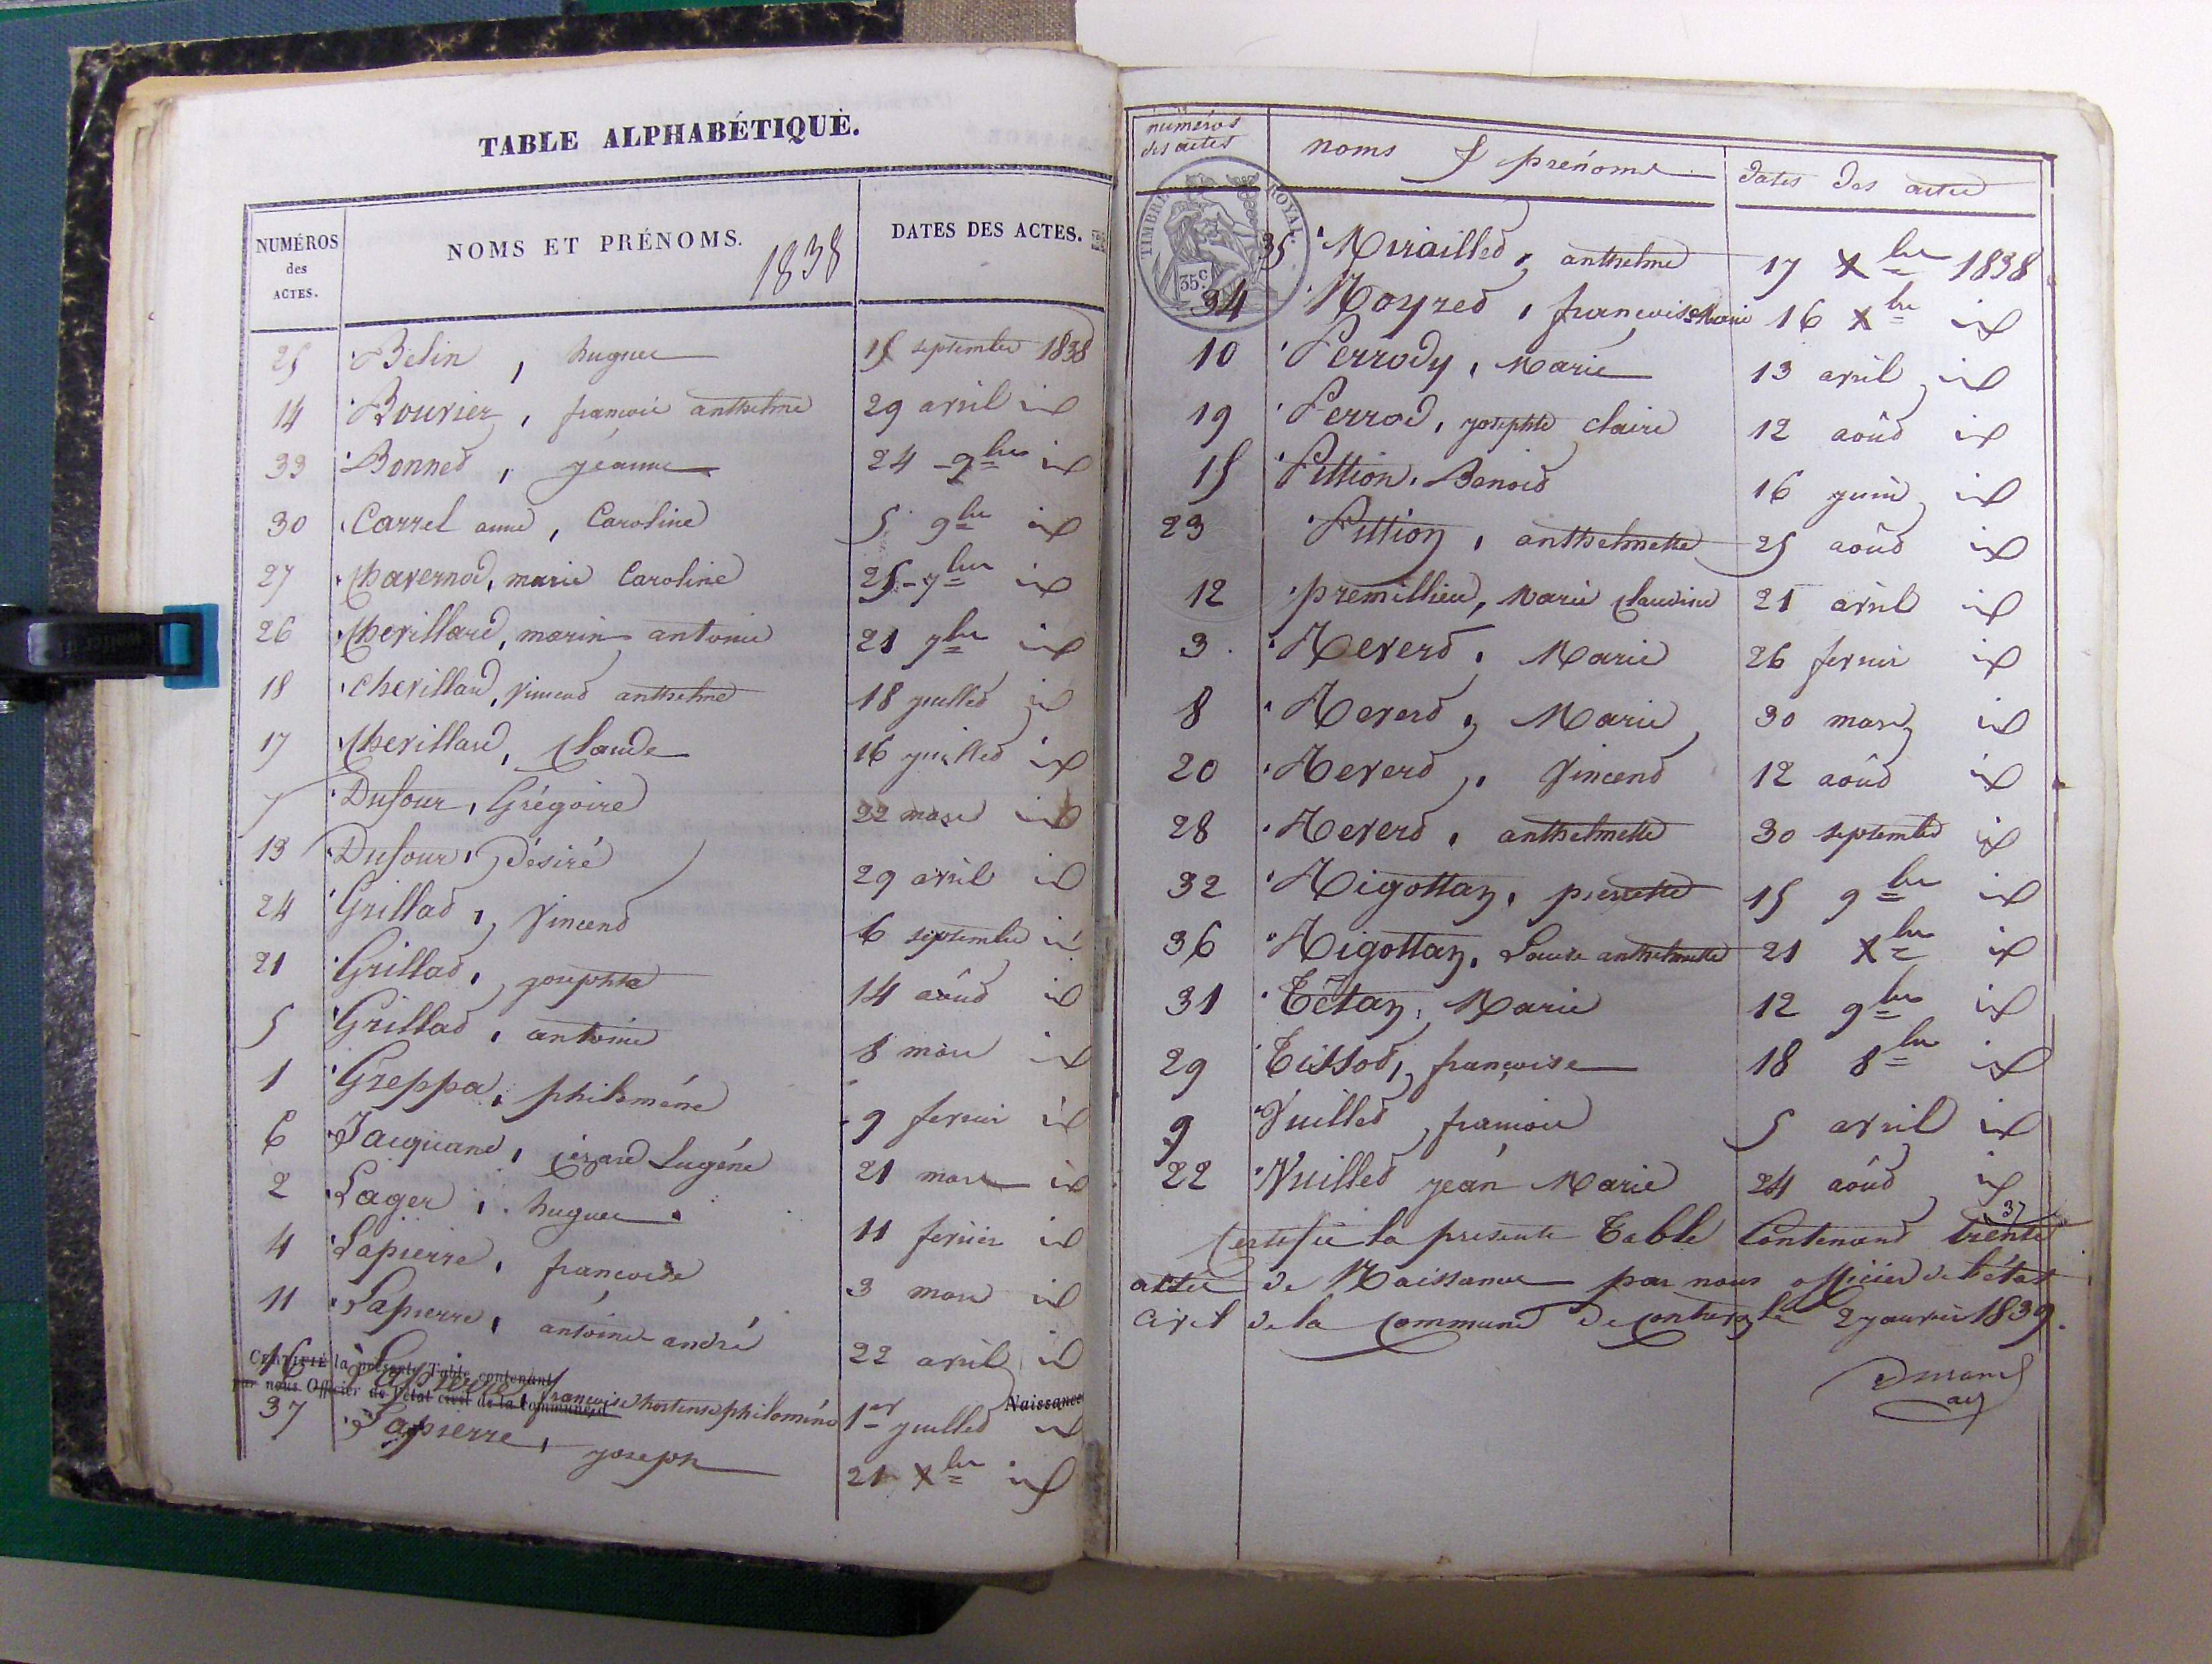 TABLE ALPHABÉTIQUE.
NUMÉROS des ACTES. NOMS ET PRÉNOMS. 1838 DATES DES ACTES.
25 Belin, hugues 15 septembre 1838
14 Bouvier, françois anthelme 29 avril id
33 Bonned, jeanne 24 9bre id
30 Carrel anne, Caroline 5 9bre id
27 Chavernod, marie Caroline 25 7bre id
26 Chevillard, marin antonin 21 7bre id
18 chevillard, vincend anthelme 18 juilled id
17 Chevillard, Claude 16 juilled id
7 Dufour, Grégoire 22 mars id
13 Dufour, Désiré 29 avril id
24 Grillad, vincend 6 septembre id
21 Grillad, josephte 14 aôud id
5 Grillad, antoine 8 mars id
1 Greppa, philomène 9 fevrier id
6 Jacquand, Eugéne 21 mars id
2 Lager, hugues 11 fevrier id
4 Lapierre, francoise 3 mars id
11 Lapierre, antoine andré 22 avril id
CERTIFIÉ la présente Table contenant Naissance
par nous Officier de l'état civil de la commune d
16 Lapierre, francoise hortense philoméne 1er juilled id
37 Lapierre, joseph 21 Xbre id
numéros des actes noms & prénoms dates des actes
TIMBRE ROYAL.
35c
35 Mirailled, anthelme 17 Xbre 1838
34 Noyred, francois Marie 16 Xbre id
10 Perrody, Marie 13 avril id
19 Perrod, josephte claire 12 aôud id
15 Pittion, Benoid 16 juin id
23 Pittion, anthelmette 25 aôud id
12 premillieu, Marie Claudine 21 avril id
3 Reverd, Marie 26 fevrier id
8 Reverd, Marie 30 mars id
20 Reverd, Vincend 12 aôud id
28 Reverd, anthelmette 30 septembre id
32 Rigottaz, pierrette 15 9bre id
36 Rigottaz, Louise anthelmette 21 Xbre id
31 Tétaz, Marie 12 9bre id
29 Tissod, françoise 18 8bre id
9 Vuilled, francois 5 avril id
22 Vuilled jean Marie 24 aôud id
37
Certifié la presente Table Contenand trente
actes de Naissance par nous officier de l'état
civil de la Commune de le 2 janvier 1839.